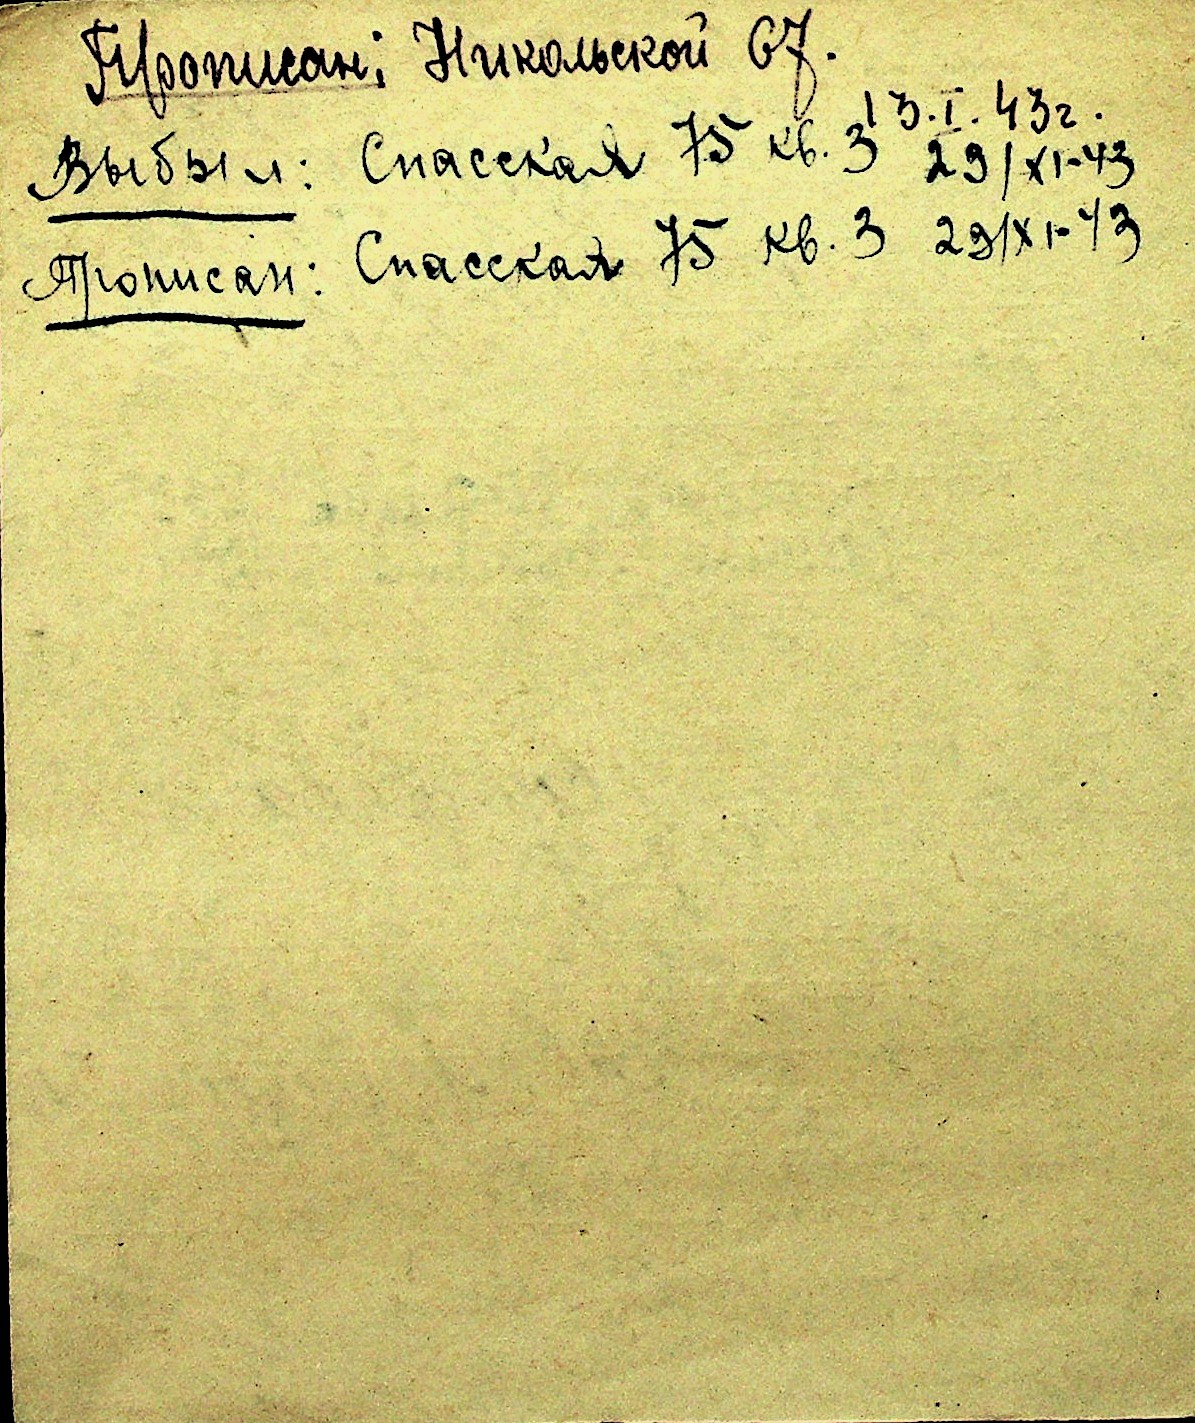 Прописан: Никольской 67.
13.I.43г.
Выбыл: Спасская 75 кв. 3 29/XI-43
Прописан: Спасская 75 кв. 3 29/XI-43